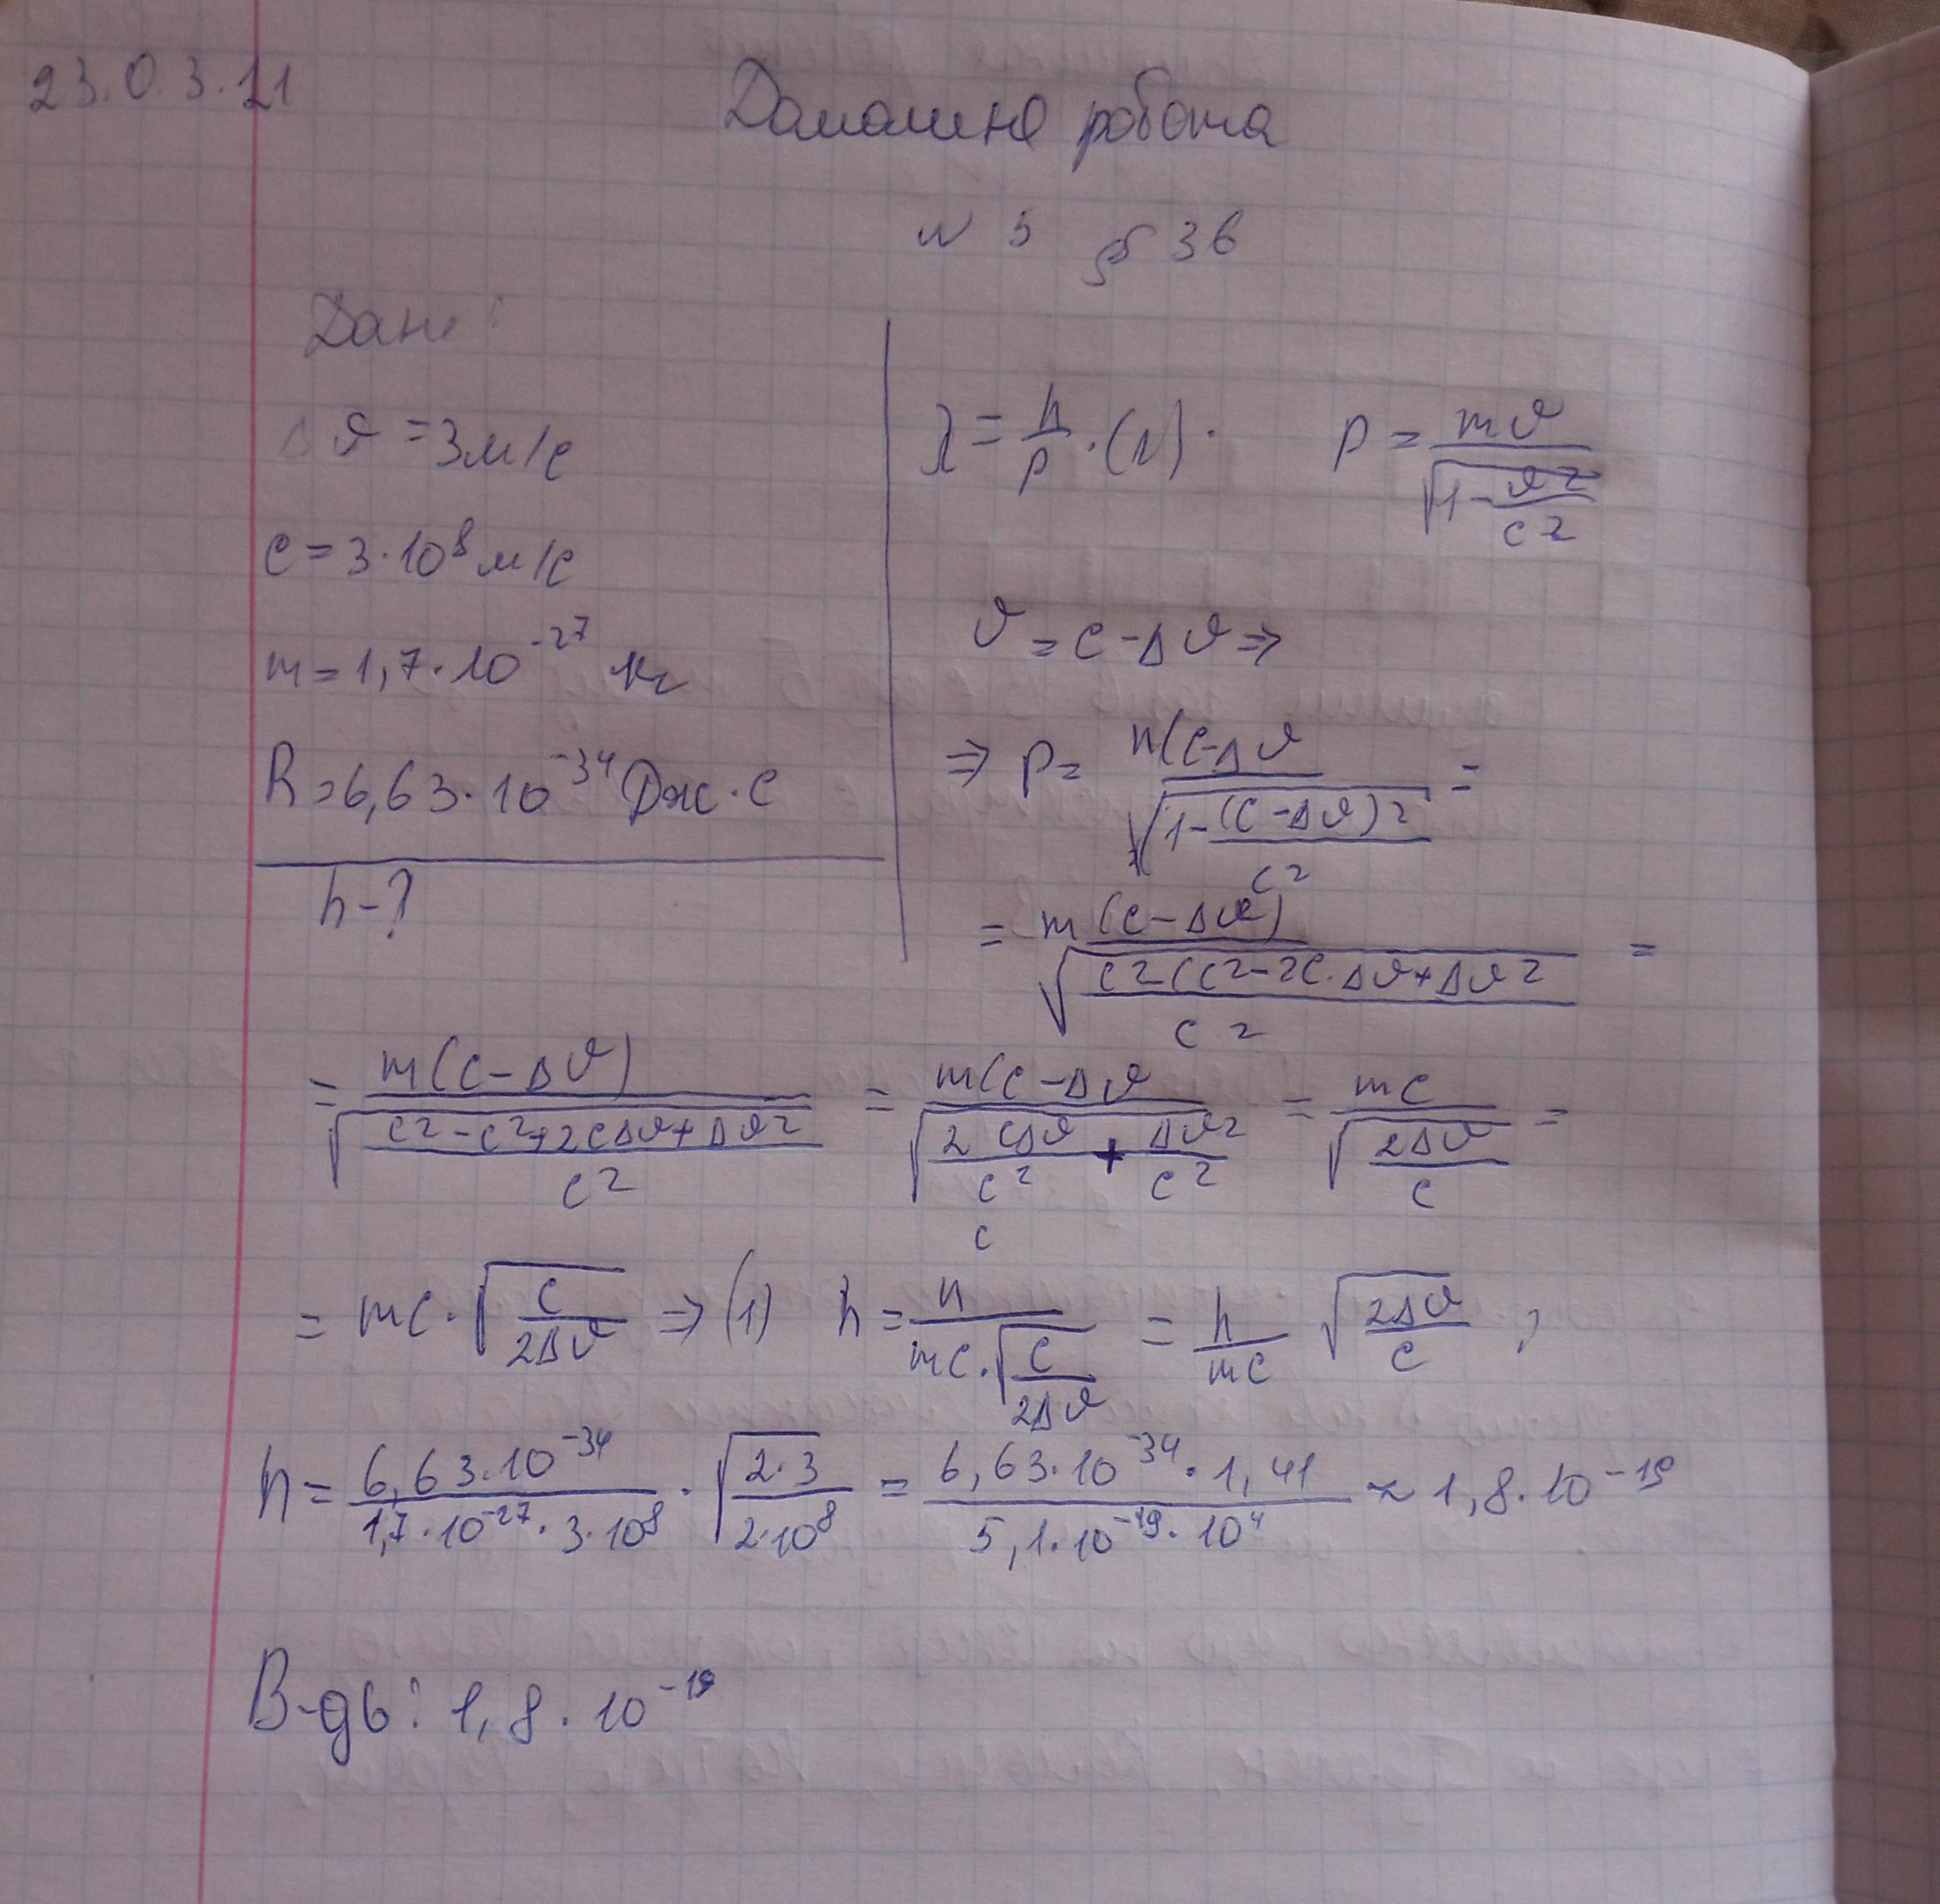 23.0.3.21
Домашня робота
N 5 § 36
Дано:
Δϑ = 3м/с
c = 3·10⁸ м/с
m = 1,7·10⁻²⁷ кг
h = 6,63·10⁻³⁴ Дж·с
h - ?
λ = h/p · (1) · p = mϑ/√(1-ϑ2/c2)
ϑ = c - Δϑ ⇒
⇒ p = m(c-Δϑ/√(1-(c-Δϑ)2/c2) =
= m(c-Δϑ)/√(c2(c2-2c·Δϑ+Δϑ2/c2) =
= m(c-Δϑ)/√(c2-c2+2cΔϑ+Δϑ2/c2) = m(c-Δϑ/√(2cΔϑ/c2 + Δϑ2/c2) = mc/√(2Δϑ/c) =
c
= mc·√(c/2Δϑ) ⇒ (1) h = h/(mc·√(c/2Δϑ)) = h/mc √(2Δϑ/c) ;
h = 6,63·10⁻³⁴/(1,7·10⁻²⁷·3·10⁸) · √(2·3/2·10⁸) = 6,63·10⁻³⁴·1,41/(5,1·10⁻¹⁹·10⁴) ≈ 1,8·10⁻¹⁹
В-дь: 1,8·10⁻¹⁹